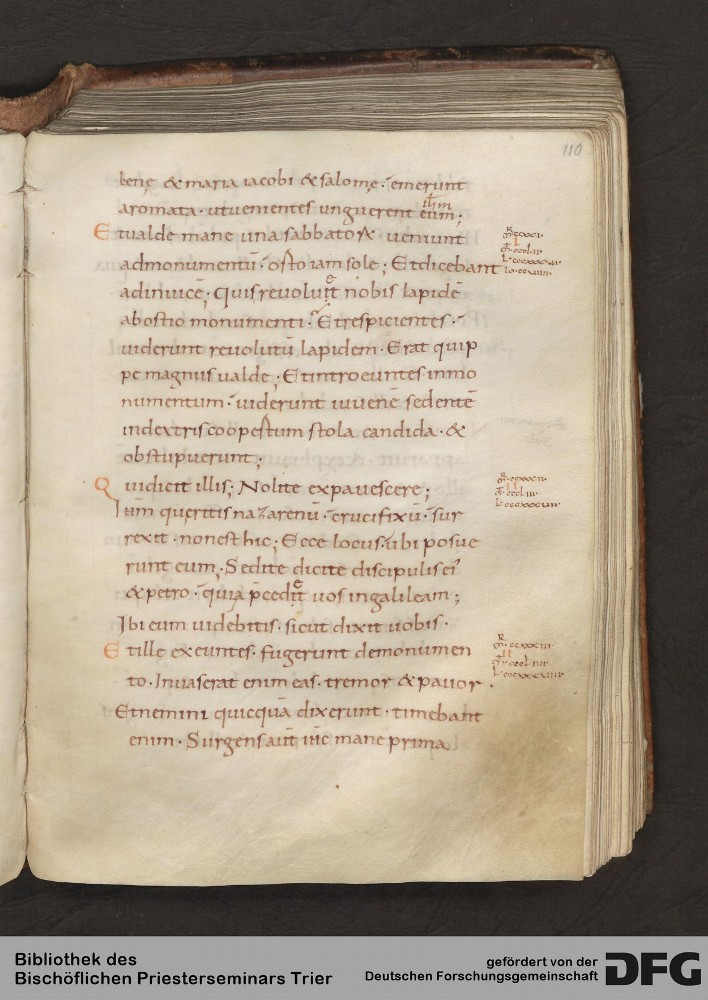 110
lenę & maria iacobi & salomę · emerunt
ihm
aromata · ut uenientes unguerent eum ;
Et ualde mane una sabbatoꝝ ueniunt
ad monumentū · orto iam sole ; Et dicebant
ad inuicē ; Quis reuoluit nobis lapidē
ab ostio monumenti · Et respicientes ·
uiderunt reuolutū lapidem · Erat quip
pe magnus ualde ; Et introeuntes in mo
numentum · uiderunt iuuenē sedentē
in dextris coopertum stola candida · &
obstupuerunt ;
Qui dicit illis ; Nolite expauescere ;
Ihm queritis nazarenū · crucifixū · sur
rexit · non est hic ; Ecce locus · ubi posue
runt eum ; Sed ite dicite discipulis ei'
& petro · quia p̄cedit uos in galileam ;
Ibi eum uidebitis · sicut dixit uobis ·
Et ille exeuntes · fugerunt de monumen
to · Inuaserat enim eas · tremor & pauor ·
Et nemini quicquā dixerunt · timebant
enim · Surgens aūt ihc mane prima
Bibliothek des
Bischöflichen Priesterseminars Trier
gefördert von der
Deutschen Forschungsgemeinschaft
DFG